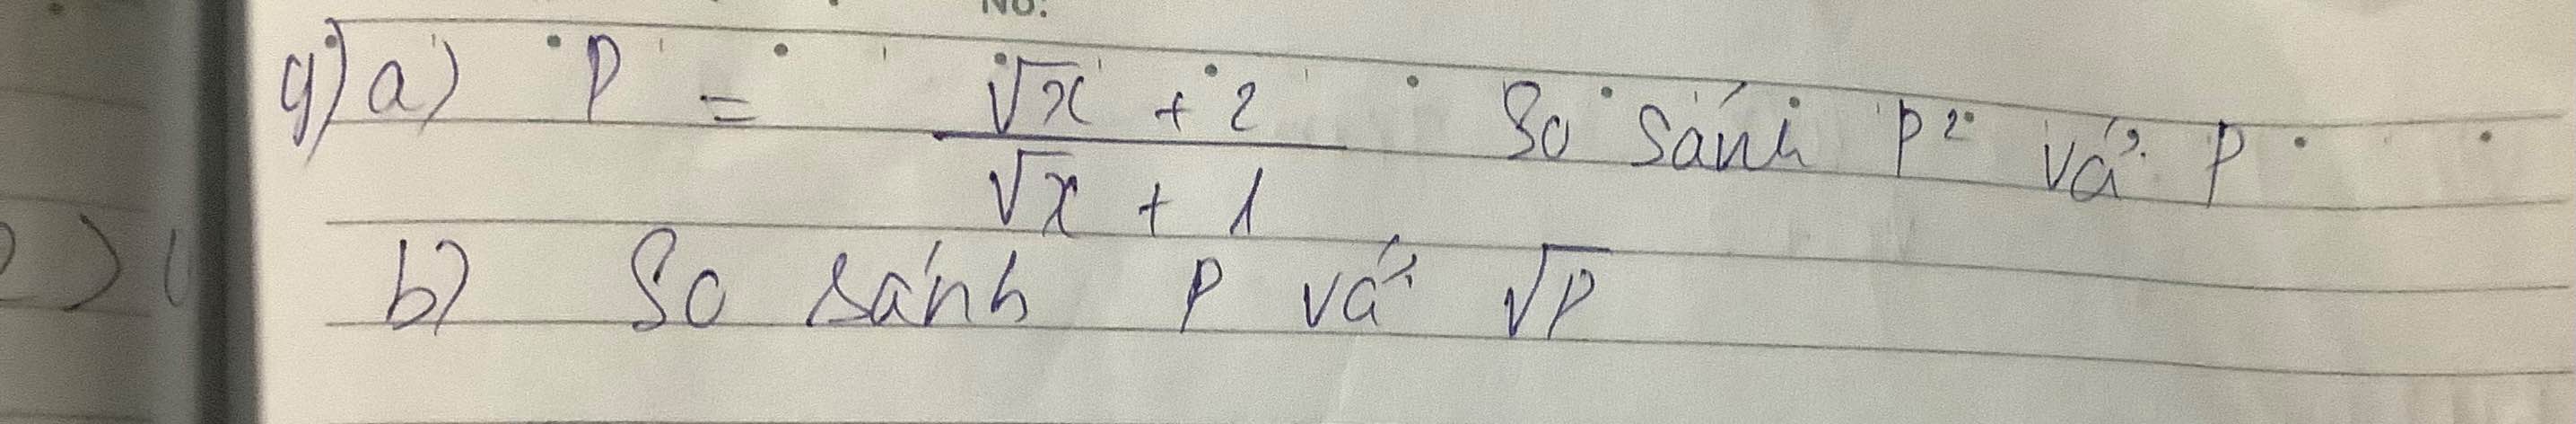 No:
9) a) P = \frac{\sqrt{x} + 2}{\sqrt{x} + 1} So sánh P² và P
b) So sánh P và √P